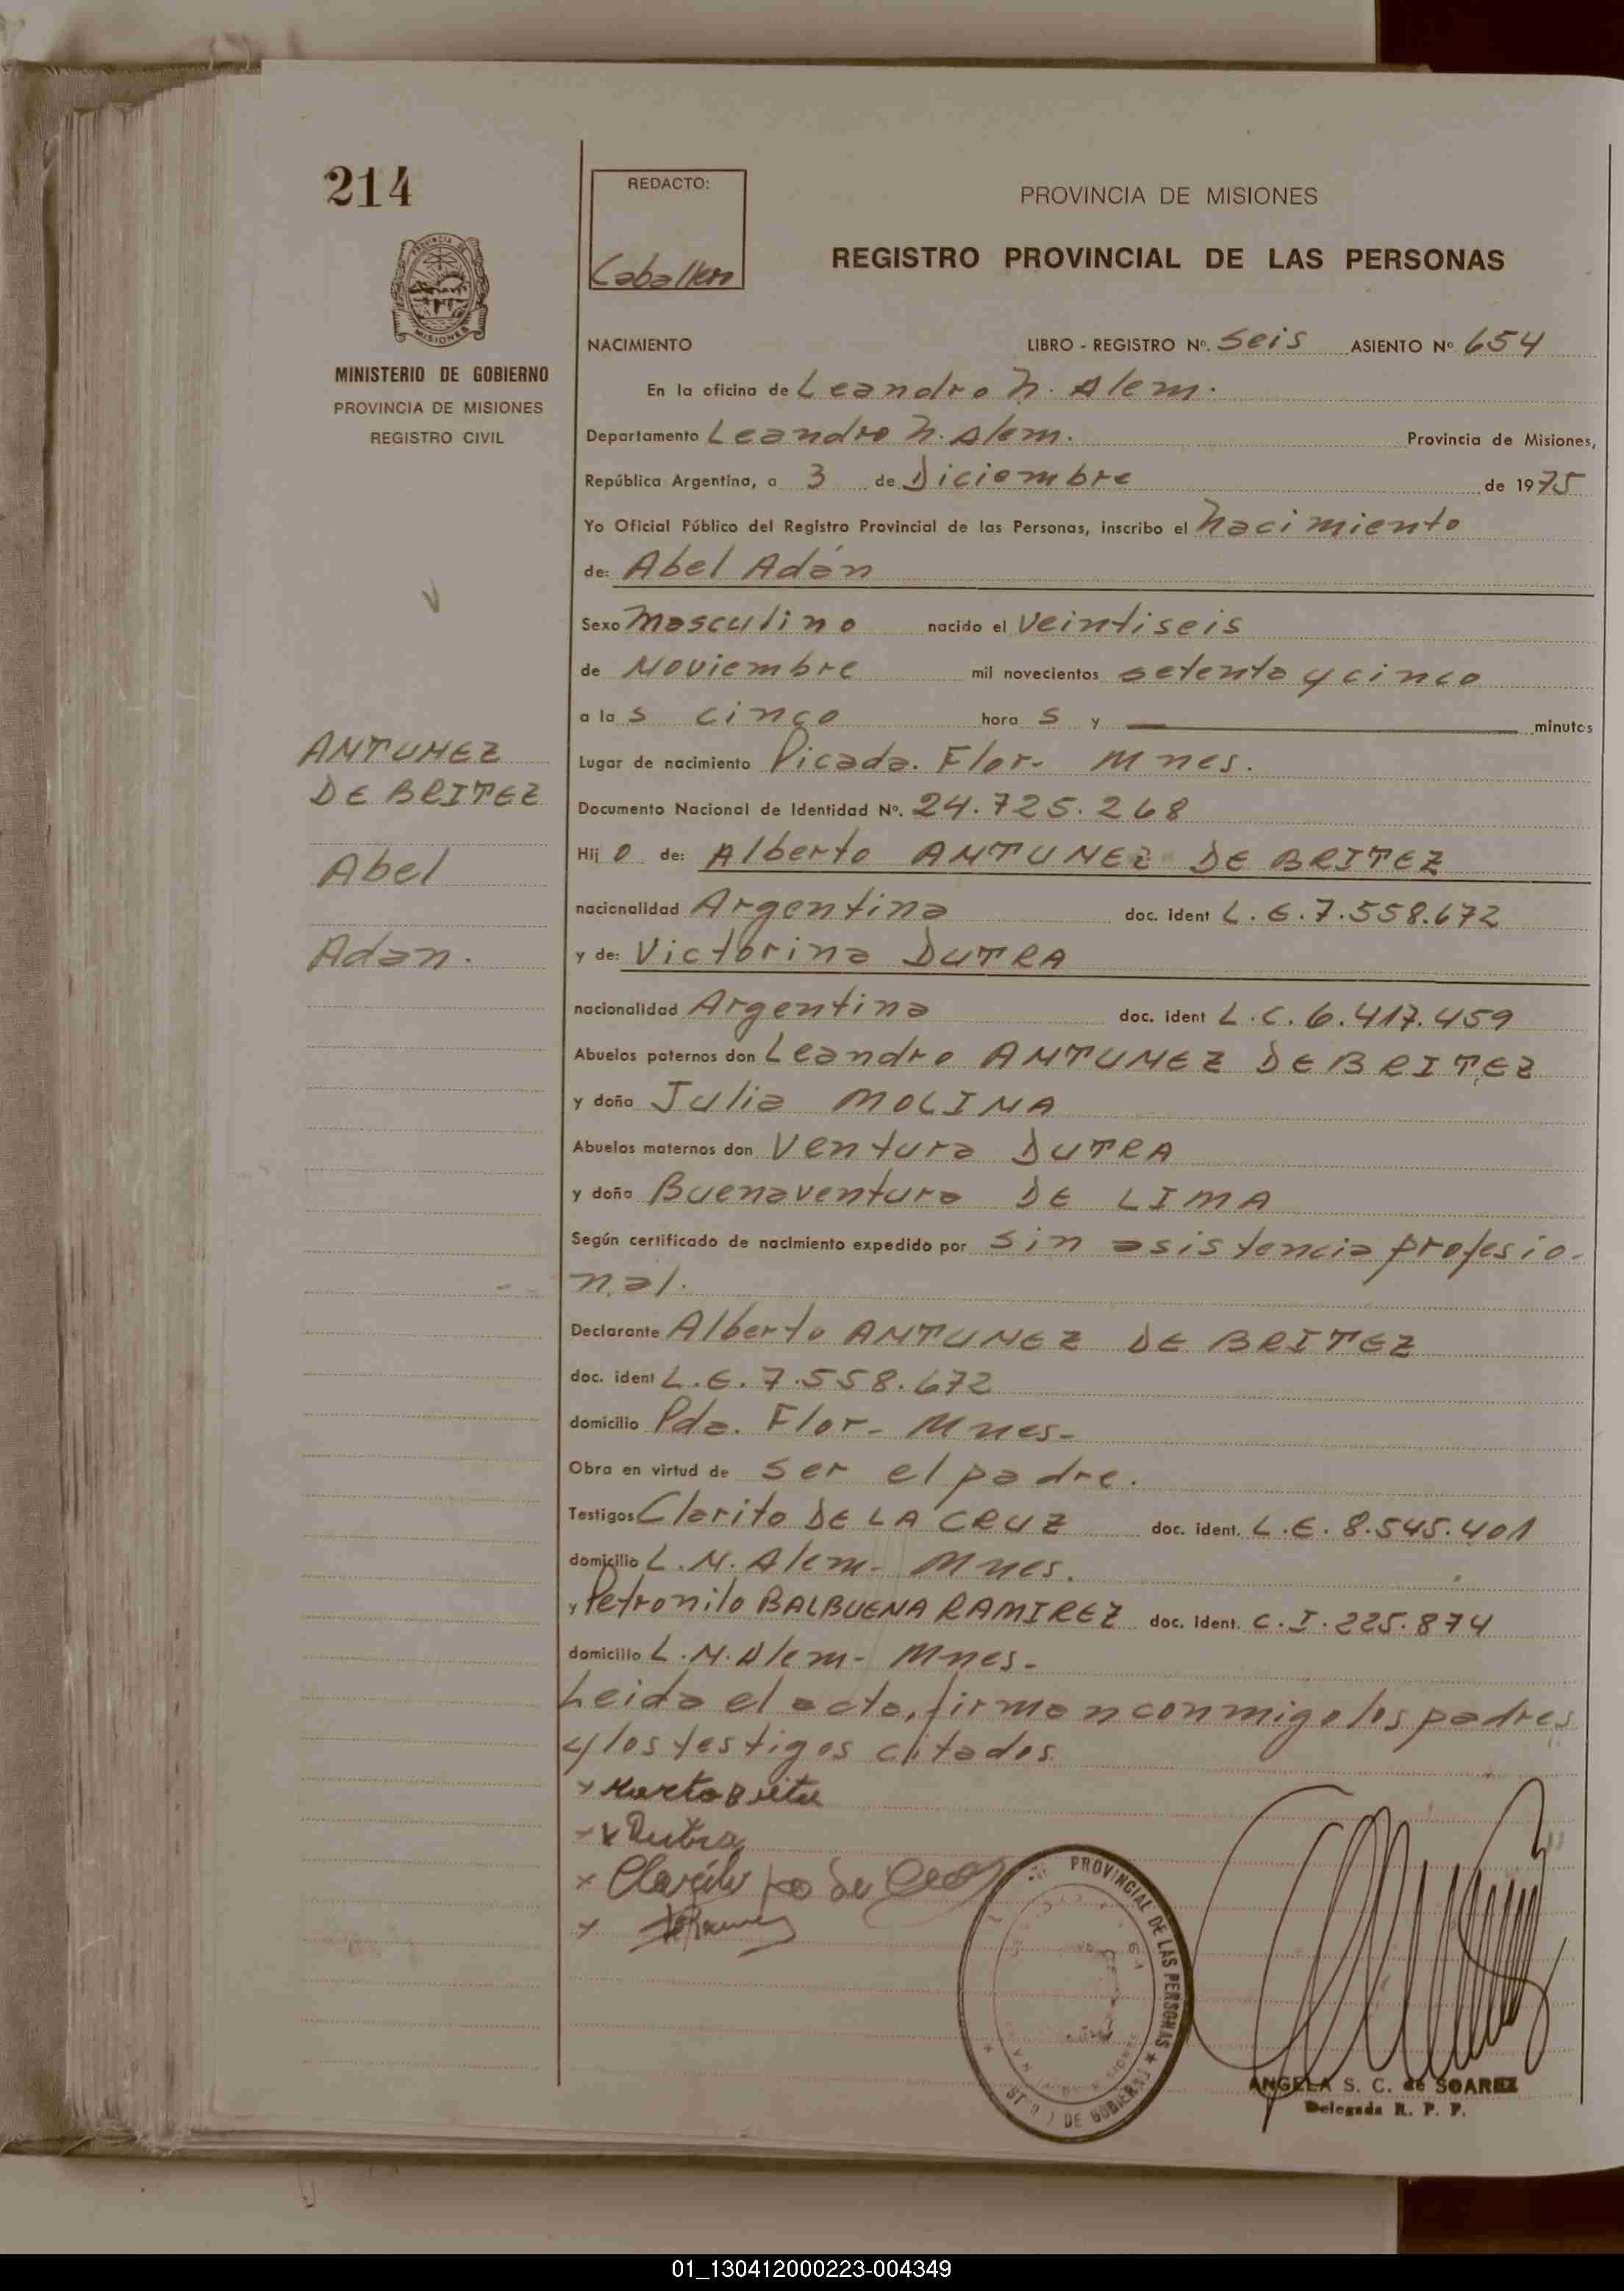 214
REDACTO:
Caballero
PROVINCIA DE MISIONES
REGISTRO PROVINCIAL DE LAS PERSONAS
MINISTERIO DE GOBIERNO
PROVINCIA DE MISIONES
REGISTRO CIVIL
NACIMIENTO LIBRO - REGISTRO Nº. Seis ASIENTO Nº 654
En la oficina de Leandro N. Alem.
Departamento Leandro N. Alem. Provincia de Misiones,
República Argentina, a 3 de Diciembre de 1975
Yo Oficial Público del Registro Provincial de las Personas, inscribo el Nacimiento
de: Abel Adán
Sexo Masculino nacido el Veintiseis
de Noviembre mil novecientos setenta y cinco
a la s cinco hora s y — minutos
Lugar de nacimiento Picada. Flor- Mnes.
Documento Nacional de Identidad Nº. 24.725.268
Hij o de: Alberto ANTUNEZ DE BRITEZ
nacionalidad Argentina doc. ident L.E.7.558.672
y de: Victorina DUTRA
nacionalidad Argentina doc. ident L.C.6.417.459
Abuelos paternos don Leandro ANTUNEZ DE BRITEZ
y doña Julia MOLINA
Abuelos maternos don Ventura DUTRA
y doña Buenaventura DE LIMA
Según certificado de nacimiento expedido por sin asistencia profesio-
nal.
Declarante Alberto ANTUNEZ DE BRITEZ
doc. ident L.E.7.558.672
domicilio Pda. Flor- Mnes-
Obra en virtud de ser el padre.
Testigos Clarito DE LA CRUZ doc. ident. L.E. 8.545.401
domicilio L.N. Alem- Mnes.
y Petronilo BALBUENA RAMIREZ doc. ident. C.I.225.874
domicilio L.N.Alem- Mnes-
Leida el acta, firman conmigo los padres
y los testigos citados
ANTUNEZ
DE BRITEZ
Abel
Adan.
Dutra
PROVINCIAL DE LAS PERSONAS
DE GOBIERNO
ANGELA S. C. de SOAREZ
Delegada R. P. P.
01_130412000223-004349